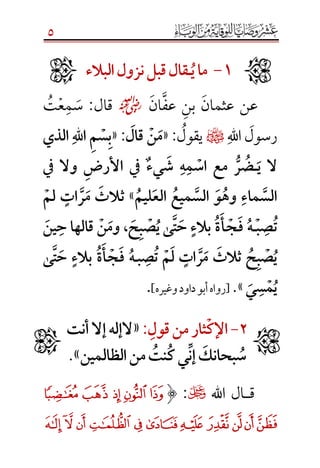 عشر وصايا للوقاية من الوباء ٥
١- ما يُقال قبل نزول البلاء
عن عثمانَ بنِ عفَّانَ رضي الله عنه قال: سَمِعْتُ
رسولَ اللهِ ﷺ يقولُ: «مَنْ قالَ: «بِسْمِ اللهِ الذي
لا يَضُرُّ مع اسْمِهِ شَيءٌ في الأرضِ ولا في
السَّماءِ وَهُوَ السَّميعُ العليمُ» ثلاثَ مَرَّاتٍ لمْ
تُصِبْهُ فَجْأَةُ بلاءٍ حَتَّىٰ يُصْبِحَ، ومَنْ قالها حِينَ
يُصْبِحُ ثلاثَ مَرَّاتٍ لَمْ تُصِبهُ فَجْأَةُ بلاءٍ حَتَّىٰ
يُمْسِيَ». [رواه أبو داود وغيره].
٢- الإكْثار من قولِ: «لاإله إلا أنت
سُبحانكَ إنِّي كُنتُ من الظالمين».
قـال الله ﷻ: ﴿وَذَا ٱلنُّونِ إِذ ذَّهَبَ مُغَٰضِبًا
فَظَنَّ أَن لَّن نَّقْدِرَ عَلَيْهِ فَنَادَىٰ فِي ٱلظُّلُمَٰتِ أَن لَّآ إِلَٰهَ